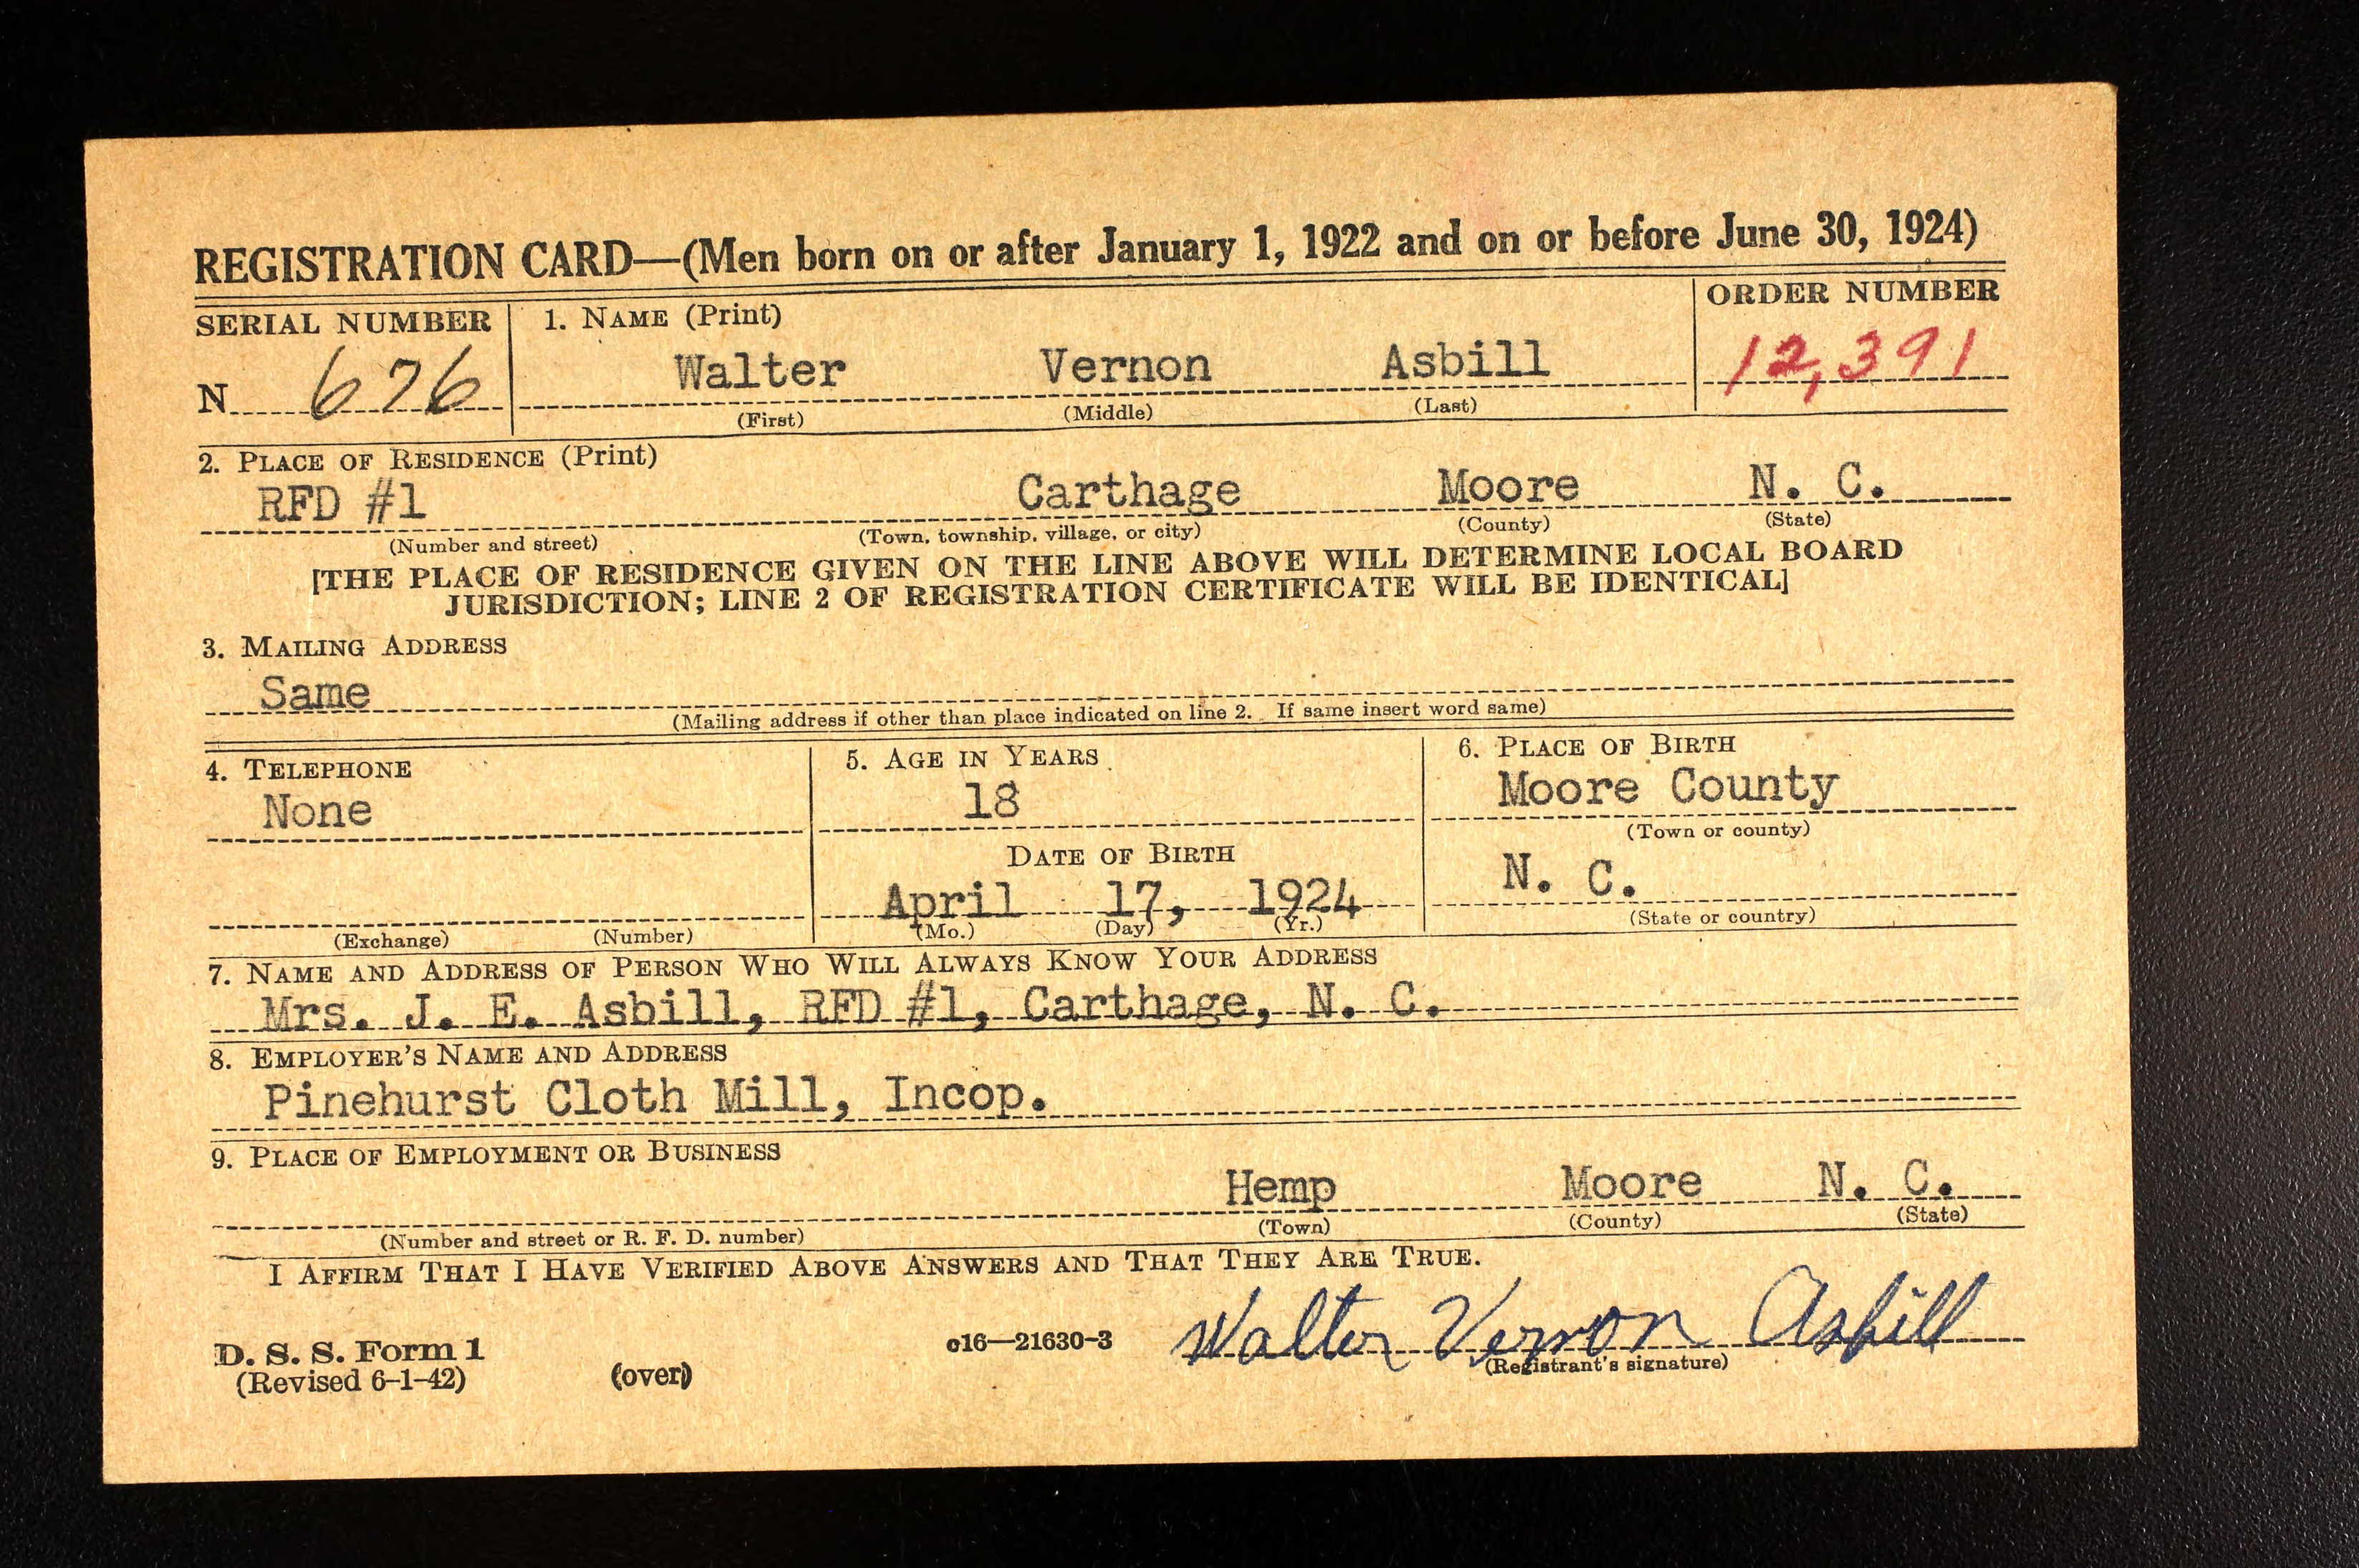 REGISTRATION CARD—(Men born on or after January 1, 1922 and on or before June 30, 1924)
SERIAL NUMBER 1. NAME (Print) ORDER NUMBER
N 676 Walter Vernon Asbill 12,391
(First) (Middle) (Last)
2. PLACE OF RESIDENCE (Print)
RFD #1 Carthage Moore N. C.
(Number and street) (Town, township, village, or city) (County) (State)
[THE PLACE OF RESIDENCE GIVEN ON THE LINE ABOVE WILL DETERMINE LOCAL BOARD
JURISDICTION; LINE 2 OF REGISTRATION CERTIFICATE WILL BE IDENTICAL]
3. MAILING ADDRESS
Same
(Mailing address if other than place indicated on line 2. If same insert word same)
4. TELEPHONE 5. AGE IN YEARS 6. PLACE OF BIRTH
None 18 Moore County
(Town or county)
DATE OF BIRTH N. C.
April 17, 1924
(Exchange) (Number) (Mo.) (Day) (Yr.) (State or country)
7. NAME AND ADDRESS OF PERSON WHO WILL ALWAYS KNOW YOUR ADDRESS
Mrs. J. E. Asbill, RFD #1, Carthage, N. C.
8. EMPLOYER'S NAME AND ADDRESS
Pinehurst Cloth Mill, Incop.
9. PLACE OF EMPLOYMENT OR BUSINESS
Hemp Moore N. C.
(Number and street or R. F. D. number) (Town) (County) (State)
I AFFIRM THAT I HAVE VERIFIED ABOVE ANSWERS AND THAT THEY ARE TRUE.
D. S. S. Form 1 c16—21630-3 Walter Vernon Asbill
(Revised 6-1-42) (over) (Registrant's signature)